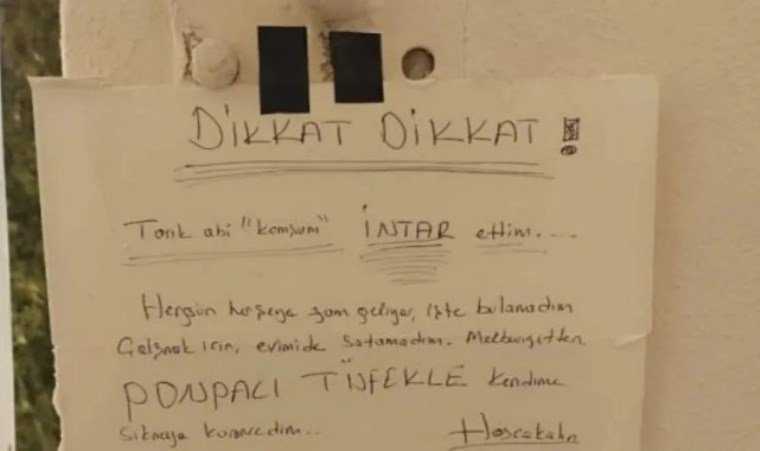 DİKKAT DİKKAT !
Tarık abi "komşum" İNTAR ettim....
Hergün herşeye zam geliyor, işte bulamadım
Çalışmak için, evimide satamadım. Mecburiyetten,
PONPALI TÜFEKLE kendime
sıkmaya kararverdim..
Hoşcakalın